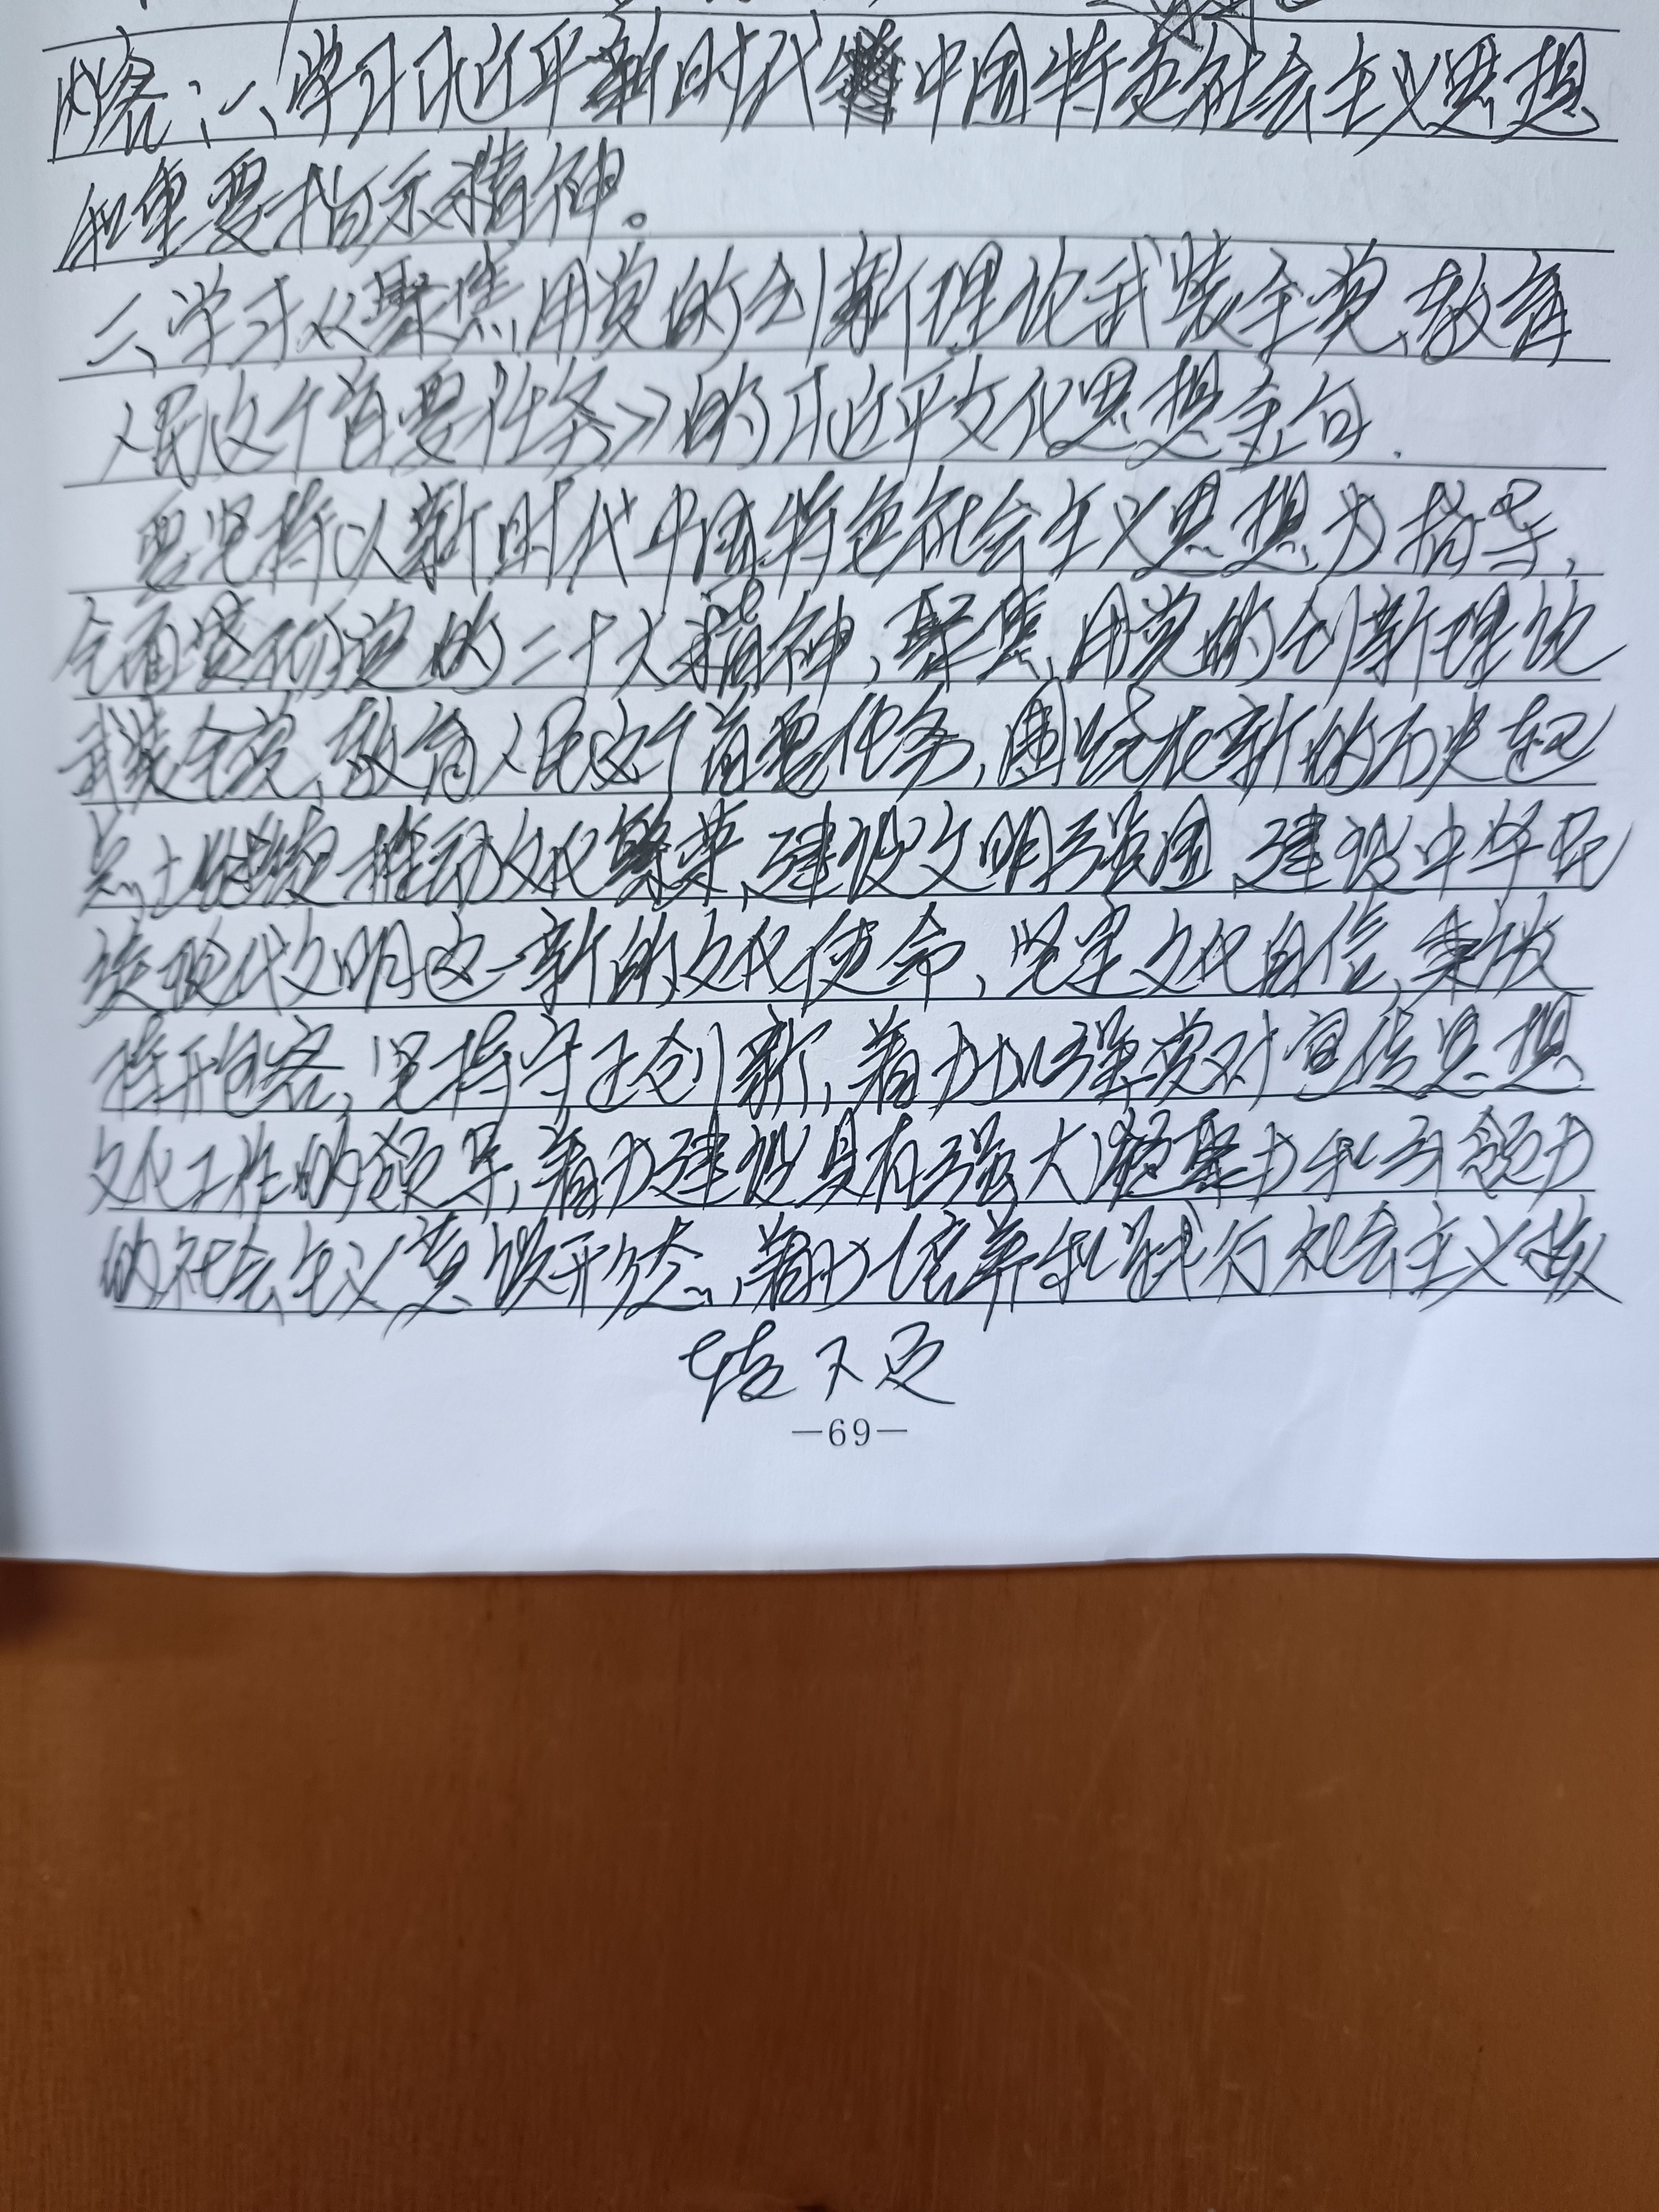 内容：一、学习习近平新时代中国特色社会主义思想
和重要指示精神。
二、学习《聚焦用党的创新理论武装全党、教育
人民这个首要任务》的习近平文化思想金句.
要坚持以新时代中国特色社会主义思想为指导,
全面贯彻党的二十大精神,聚焦用党的创新理论
武装全党、教育人民这个首要任务,围绕在新的历史起
点上继续推动文化繁荣、建设文明强国、建设中华民
族现代文明这一新的文化使命,坚定文化自信,秉
持开包容,坚持守正创新,着力加强党对宣传思想
文化工作的领导,着力建设具有强大凝聚力和引领力
的社会主义意识形态,着力培养和践行社会主义核
接下页
—69—